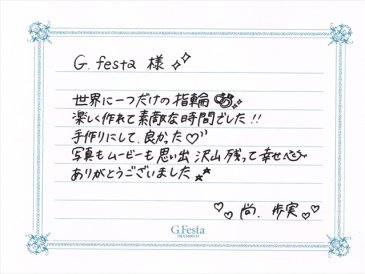 G.festa 様
世界に一つだけの指輪
楽しく作れて素敵な時間でした!!
手作りにして、良かった♡
写真もムービーも思い出沢山残って幸せ
ありがとうございました
尚、歩実
G.Festa